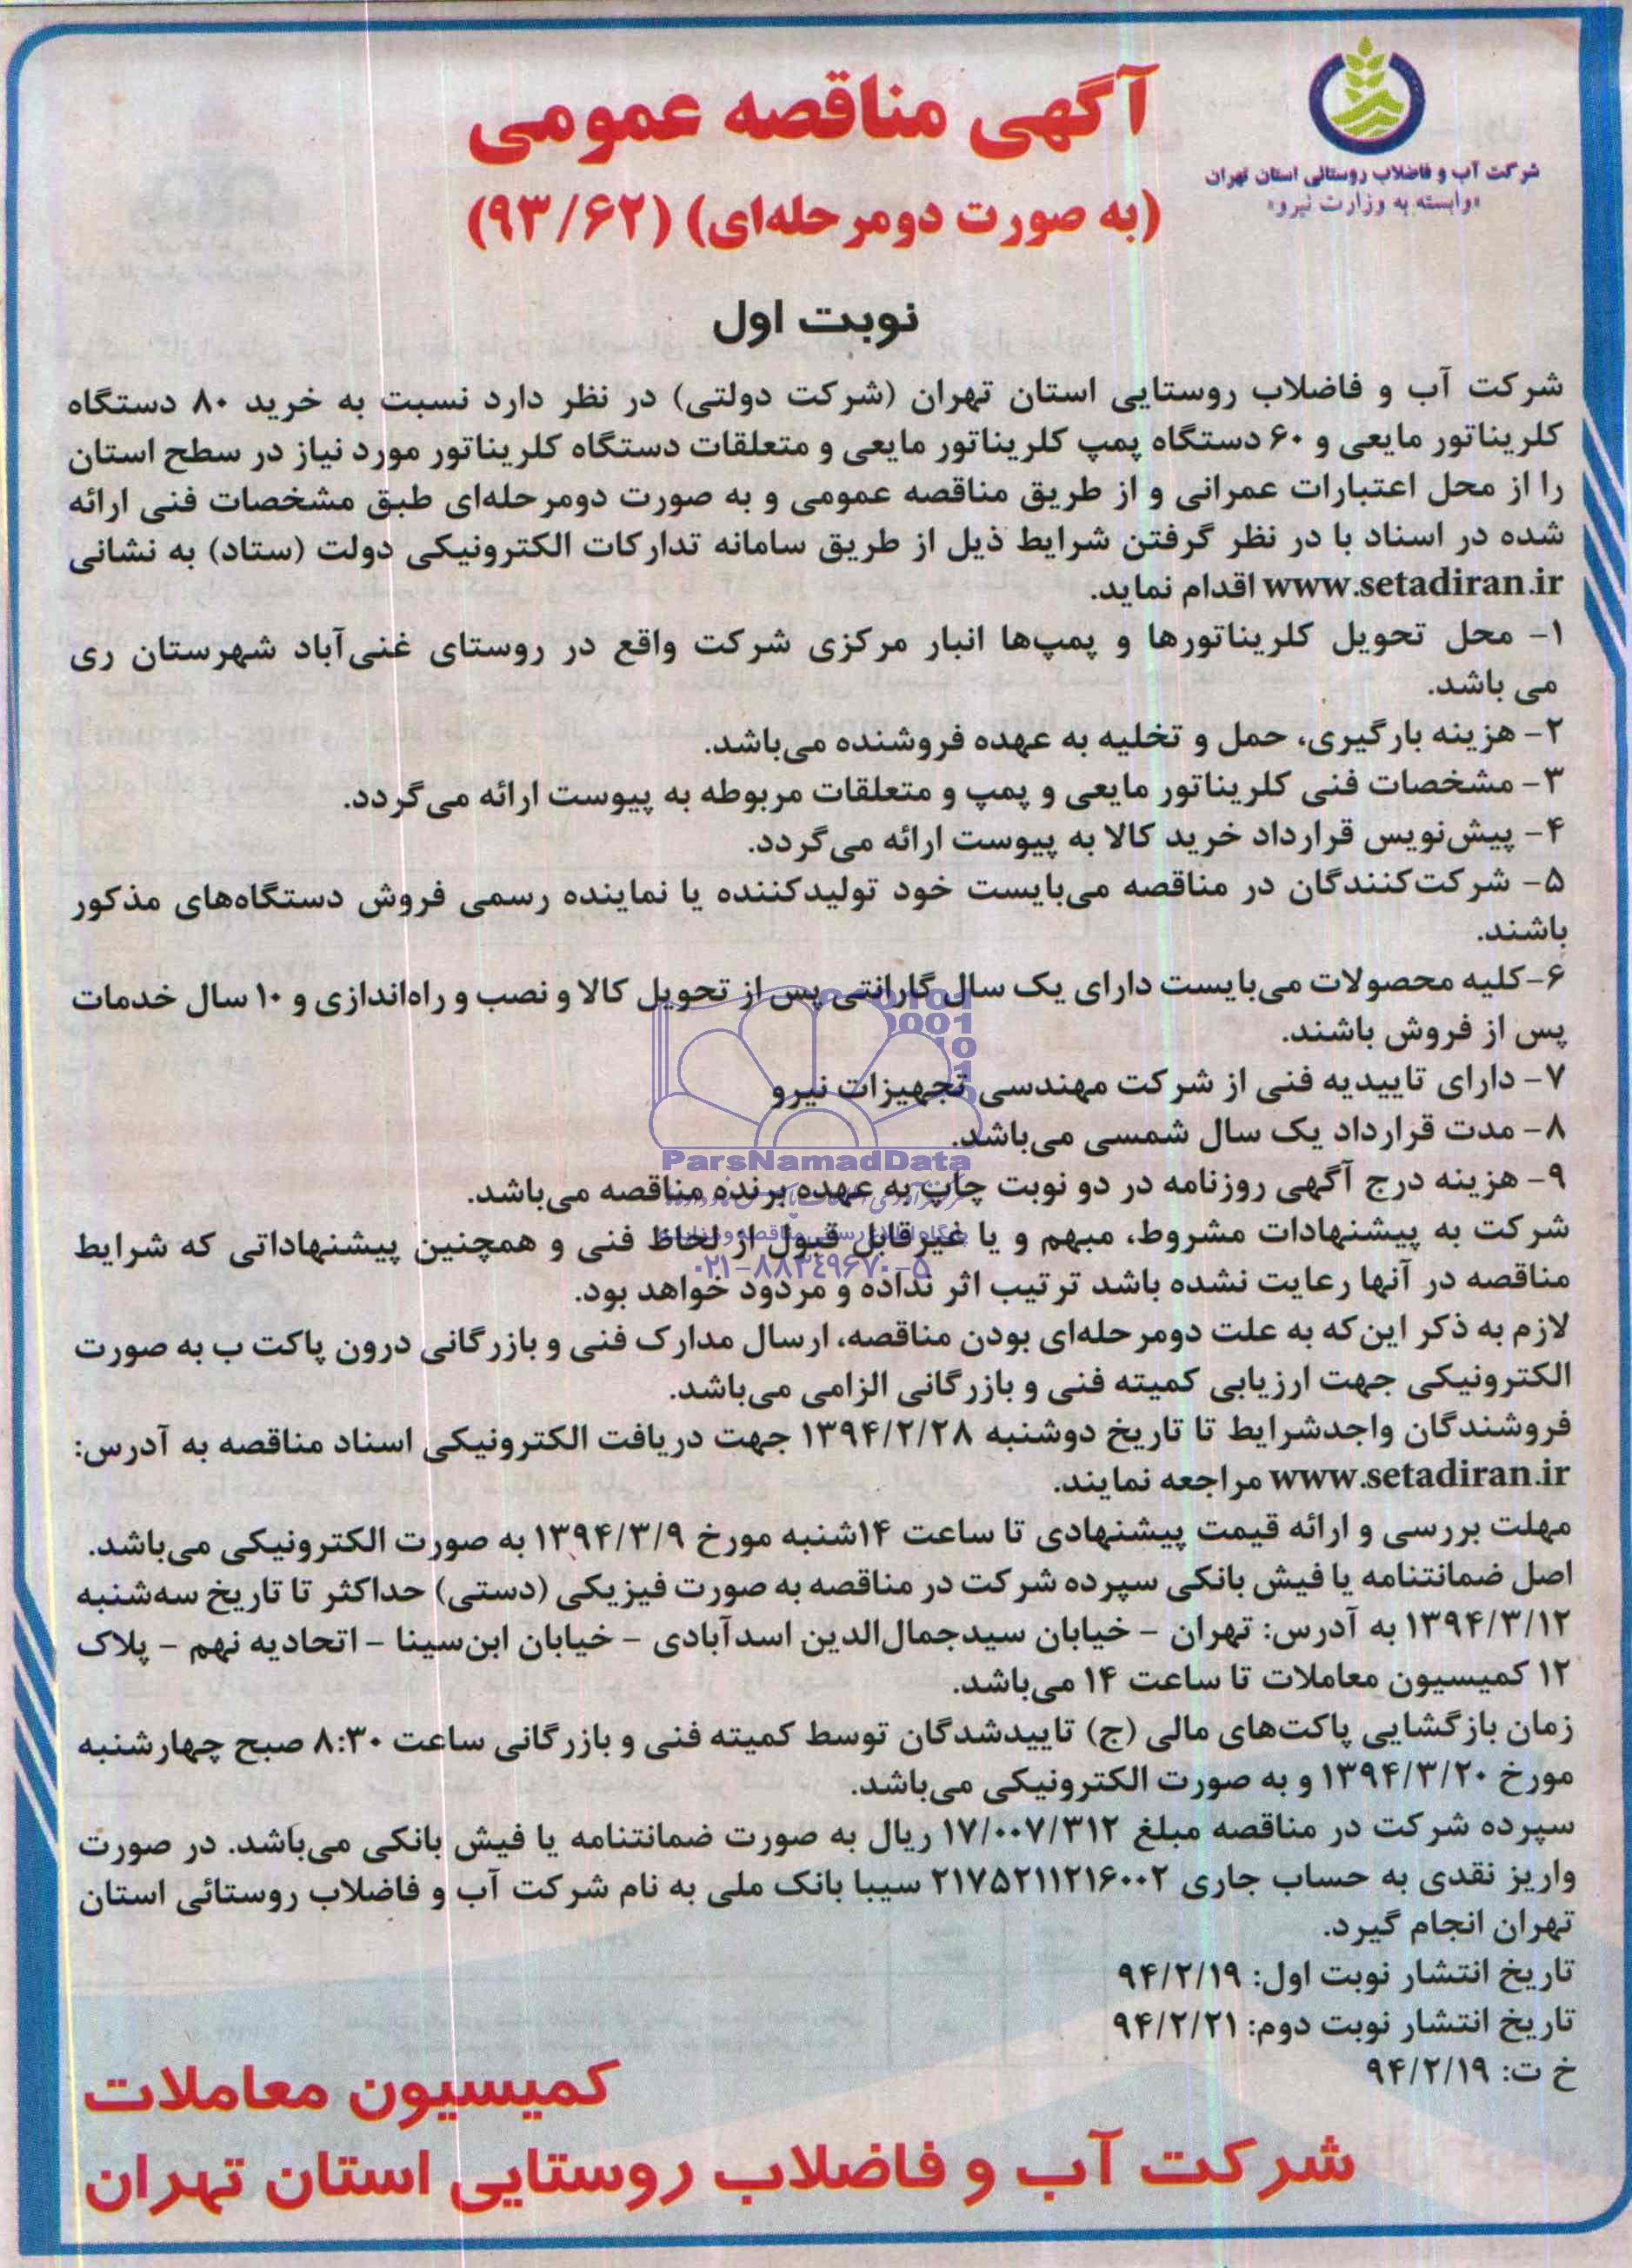 شرکت آب و فاضلاب روستائی استان تهران
«وابسته به وزارت نیرو»
آگهی مناقصه عمومی
(به صورت دومرحله‌ای) (۹۳/۶۲)
نوبت اول
شرکت آب و فاضلاب روستایی استان تهران (شرکت دولتی) در نظر دارد نسبت به خرید ۸۰ دستگاه
کلریناتور مایعی و ۶۰ دستگاه پمپ کلریناتور مایعی و متعلقات دستگاه کلریناتور مورد نیاز در سطح استان
را از محل اعتبارات عمرانی و از طریق مناقصه عمومی و به صورت دومرحله‌ای طبق مشخصات فنی ارائه
شده در اسناد با در نظر گرفتن شرایط ذیل از طریق سامانه تدارکات الکترونیکی دولت (ستاد) به نشانی
www.setadiran.ir اقدام نماید.
۱- محل تحویل کلریناتورها و پمپ‌ها انبار مرکزی شرکت واقع در روستای غنی‌آباد شهرستان ری
می باشد.
۲- هزینه بارگیری، حمل و تخلیه به عهده فروشنده می‌باشد.
۳- مشخصات فنی کلریناتور مایعی و پمپ و متعلقات مربوطه به پیوست ارائه می‌گردد.
۴- پیش‌نویس قرارداد خرید کالا به پیوست ارائه می‌گردد.
۵- شرکت‌کنندگان در مناقصه می‌بایست خود تولیدکننده یا نماینده رسمی فروش دستگاه‌های مذکور
باشند.
۶-کلیه محصولات می‌بایست دارای یک سال گارانتی پس از تحویل کالا و نصب و راه‌اندازی و ۱۰ سال خدمات
پس از فروش باشند.
۷- دارای تاییدیه فنی از شرکت مهندسی تجهیزات نیرو
۸- مدت قرارداد یک سال شمسی می‌باشد.
ParsNamadData
۹- هزینه درج آگهی روزنامه در دو نوبت چاپ به عهده برنده مناقصه می‌باشد.
شرکت به پیشنهادات مشروط، مبهم و یا غیرقابل قبول از لحاظ فنی و همچنین پیشنهاداتی که شرایط
۰۲۱-۸۸۳۴۹۶۷۰-۵
مناقصه در آنها رعایت نشده باشد ترتیب اثر نداده و مردود خواهد بود.
لازم به ذکر این‌که به علت دومرحله‌ای بودن مناقصه، ارسال مدارک فنی و بازرگانی درون پاکت ب به صورت
الکترونیکی جهت ارزیابی کمیته فنی و بازرگانی الزامی می‌باشد.
فروشندگان واجدشرایط تا تاریخ دوشنبه ۱۳۹۴/۲/۲۸ جهت دریافت الکترونیکی اسناد مناقصه به آدرس:
www.setadiran.ir مراجعه نمایند.
مهلت بررسی و ارائه قیمت پیشنهادی تا ساعت ۱۴شنبه مورخ ۱۳۹۴/۳/۹ به صورت الکترونیکی می‌باشد.
اصل ضمانتنامه یا فیش بانکی سپرده شرکت در مناقصه به صورت فیزیکی (دستی) حداکثر تا تاریخ سه‌شنبه
۱۳۹۴/۳/۱۲ به آدرس: تهران - خیابان سیدجمال‌الدین اسدآبادی - خیابان ابن‌سینا - اتحادیه نهم - پلاک
۱۲ کمیسیون معاملات تا ساعت ۱۴ می‌باشد.
زمان بازگشایی پاکت‌های مالی (ج) تاییدشدگان توسط کمیته فنی و بازرگانی ساعت ۸:۳۰ صبح چهارشنبه
مورخ ۱۳۹۴/۳/۲۰ و به صورت الکترونیکی می‌باشد.
سپرده شرکت در مناقصه مبلغ ۱۷/۰۰۷/۳۱۲ ریال به صورت ضمانتنامه یا فیش بانکی می‌باشد. در صورت
واریز نقدی به حساب جاری ۲۱۷۵۲۱۱۲۱۶۰۰۲ سیبا بانک ملی به نام شرکت آب و فاضلاب روستائی استان
تهران انجام گیرد.
تاریخ انتشار نوبت اول: ۹۴/۲/۱۹
تاریخ انتشار نوبت دوم: ۹۴/۲/۲۱
خ ت: ۹۴/۲/۱۹
کمیسیون معاملات
شرکت آب و فاضلاب روستایی استان تهران